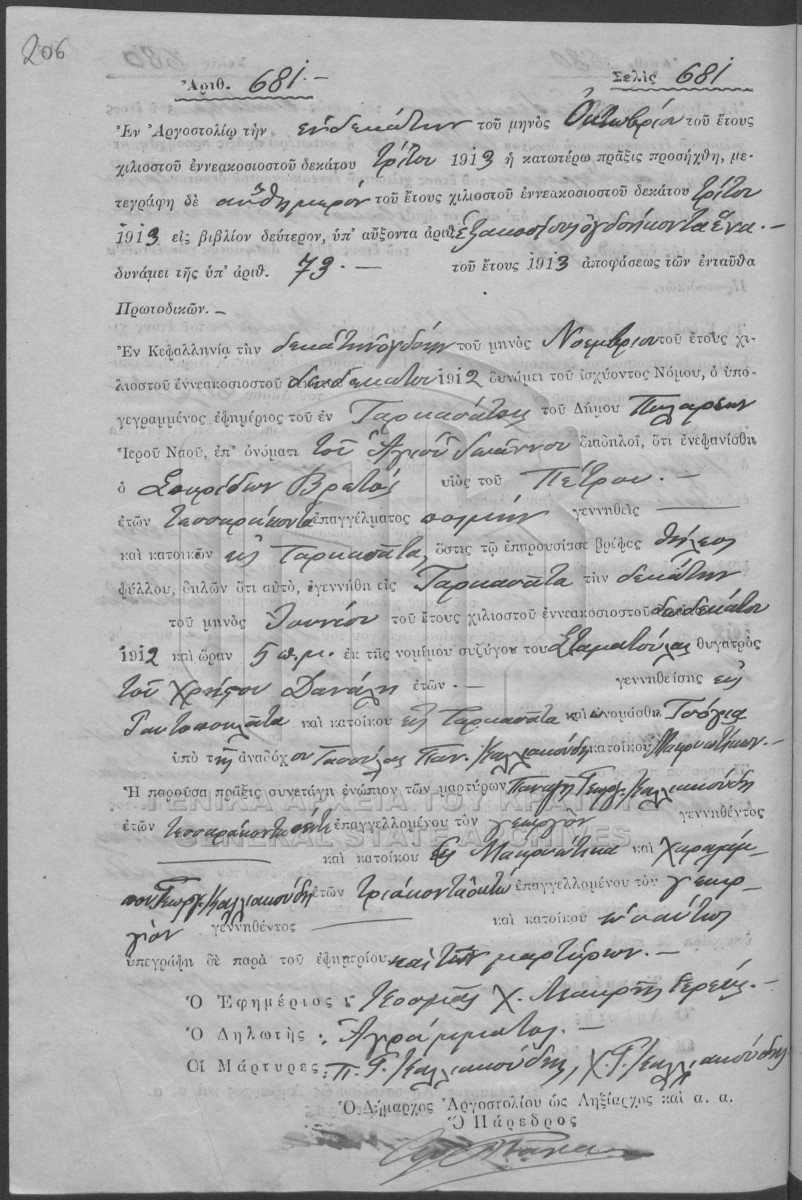 206
Ἀριθ. 681.—
Σελὶς 681
Ἐν Ἀργοστολίῳ τὴν ἑνδεκάτην τοῦ μηνὸς Ὀκτωβρίου τοῦ ἔτους
χιλιοστοῦ ἐννεακοσιοστοῦ δεκάτου τρίτου 1913 ἡ κατωτέρω πρᾶξις προσήχθη, με-
τεγράφη δὲ αὐθημερόν τοῦ ἔτους χιλιοστοῦ ἐννεακοσιοστοῦ δεκάτου τρίτου
1913 εἰς βιβλίον δεύτερον, ὑπ' αὔξοντα ἀριθ. ἑξακόσια ὀγδοήκοντα ἕνα.—
δυνάμει τῆς ὑπ' ἀριθ. 73.— τοῦ ἔτους 1913 ἀποφάσεως τῶν ἐνταῦθα
Πρωτοδικῶν.—
Ἐν Κεφαλληνίᾳ τὴν δεκάτην ὀγδόην τοῦ μηνὸς Νοεμβρίου τοῦ ἔτους χι-
λιοστοῦ ἐννεακοσιοστοῦ δωδεκάτου 1912 δυνάμει τοῦ ἰσχύοντος Νόμου, ὁ ὑπό-
γεγραμμένος ἐφημέριος τοῦ ἐν Ταρκασάτοις τοῦ Δήμου Πυλαρέων
Ἱεροῦ Ναοῦ, ἐπ' ὀνόματι τοῦ Ἁγίου Ἰωάννου διαδηλοῖ, ὅτι ἐνεφανίσθη
ὁ Σπυρίδων Βρεττός υἱὸς τοῦ Πέτρου.—
ἐτῶν τεσσαράκοντα ἐπαγγέλματος ποιμήν γεννηθεὶς
καὶ κατοικῶν εἰς Ταρκασάτα, ὅστις τῷ ἐπαρουσίασε βρέφος θήλεος
φύλλου, δηλῶν ὅτι αὐτὸ, ἐγεννήθη εἰς Ταρκασάτα τὴν δεκάτην
τοῦ μηνὸς Ἰουνίου τοῦ ἔτους χιλιοστοῦ ἐννεακοσιοστοῦ δωδεκάτου
1912 καὶ ὥραν 5 π.μ. ἐκ τῆς νομίμου συζύγου του Σταματούλας θυγατρὸς
τοῦ Χρήστου Δανάλη ἐτῶν.— γεννηθείσης εἰς
καὶ κατοίκου εἰς Ταρκασάτα καὶ ὠνομάσθη
ὑπὸ τῆς ἀναδόχου Τασούλας Παν. Καλλιακούδη κατοίκου Μακρυωτίκων.—
Ἡ παροῦσα πρᾶξις συνετάγη ἐνώπιον τῶν μαρτύρων Παναγῆ Γεωργ. Καλλιακούδη
ΓΕΝΙΚΑ ΑΡΧΕΙΑ ΤΟΥ ΚΡΑΤΟΥΣ
ἐτῶν τεσσαράκοντα πέντε ἐπαγγελλομένου τὸν γεωργόν γεννηθέντος
GENERAL STATE ARCHIVES
καὶ κατοίκου εἰς Μακρυώτικα καὶ Χαραλάμ-
που Γεωργ. Καλλιακούδη ἐτῶν τριάκοντα ὀκτώ ἐπαγγελλομένου τὸν γεωρ-
γόν γεννηθέντος καὶ κατοίκου ὡσαύτως
ὑπεγράφη δὲ παρὰ τοῦ ἐφημερίου καὶ τῶν μαρτύρων.—
Ὁ Ἐφημέριος: Χ. Μακρῆς ἱερεύς.—
Ὁ Δηλωτὴς: Ἀγράμματος.—
Οἱ Μάρτυρες: Π. Γ. Καλλιακούδης, Χ. Γ. Καλλιακούδης
Ὁ Δήμαρχος Ἀργοστολίου ὡς Ληξίαρχος καὶ α. α.
Ὁ Πάρεδρος